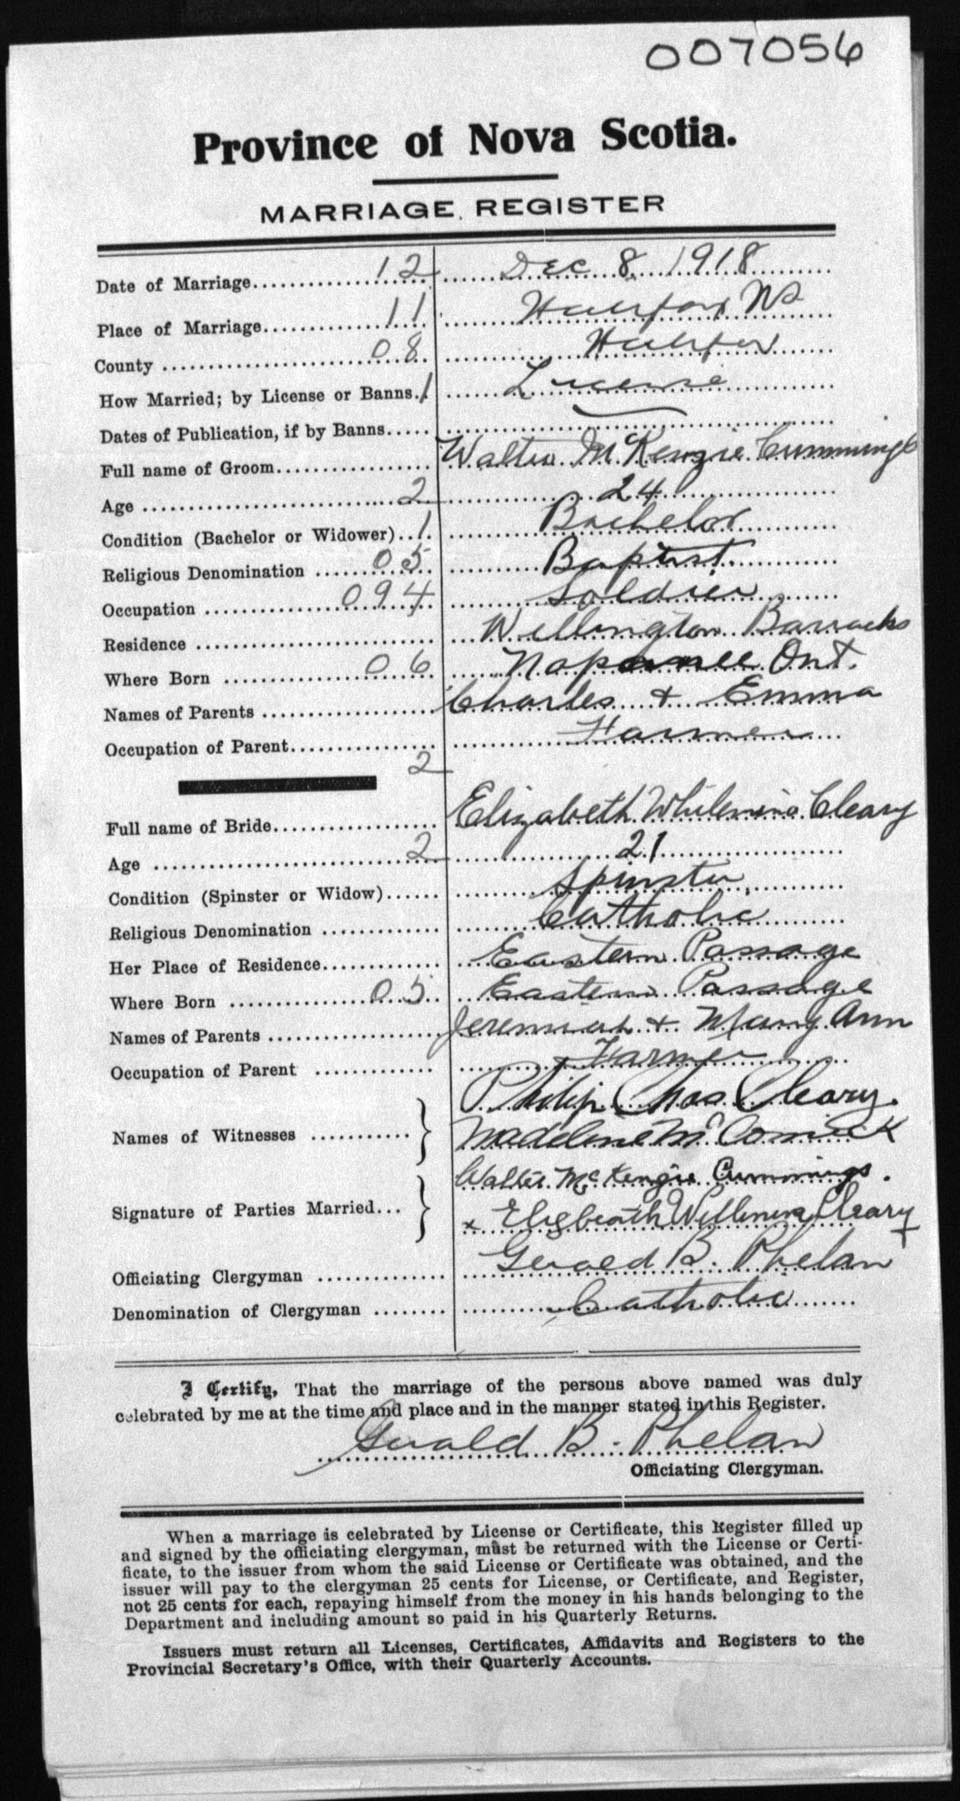 007056
Province of Nova Scotia.
MARRIAGE REGISTER
Date of Marriage 12 Dec 8 1918
Place of Marriage 11 Halifax NS
County 08 Halifax
How Married; by License or Banns 1 License
Dates of Publication, if by Banns
Full name of Groom Walter McKenzie Cummings
Age 2 24
Condition (Bachelor or Widower) 1 Bachelor
Religious Denomination 05 Baptist
Occupation 094 Soldier
Residence Wellington Barracks
Where Born 06 Napanee Ont.
Names of Parents Charles + Emma
Occupation of Parent Farmer
2
Full name of Bride Elizabeth Whilemina Cleary
Age 2 21
Condition (Spinster or Widow) Spinster
Religious Denomination Catholic
Her Place of Residence Eastern Passage
Where Born 05 Eastern Passage
Names of Parents Jeremiah + Mary Ann
Occupation of Parent Farmer
Names of Witnesses } Philip Chas Cleary.
Madeline McCormick
Signature of Parties Married } Walter McKenzie Cummings.
x Cleary
Officiating Clergyman Gerald B. Phelan
Denomination of Clergyman Catholic
I Certify, That the marriage of the persons above named was duly
celebrated by me at the time and place and in the manner stated in this Register.
Gerald B. Phelan
Officiating Clergyman.
When a marriage is celebrated by License or Certificate, this Register filled up
and signed by the officiating clergyman, must be returned with the License or Certi-
ficate, to the issuer from whom the said License or Certificate was obtained, and the
issuer will pay to the clergyman 25 cents for License, or Certificate, and Register,
not 25 cents for each, repaying himself from the money in his hands belonging to the
Department and including amount so paid in his Quarterly Returns.
Issuers must return all Licenses, Certificates, Affidavits and Registers to the
Provincial Secretary's Office, with their Quarterly Accounts.